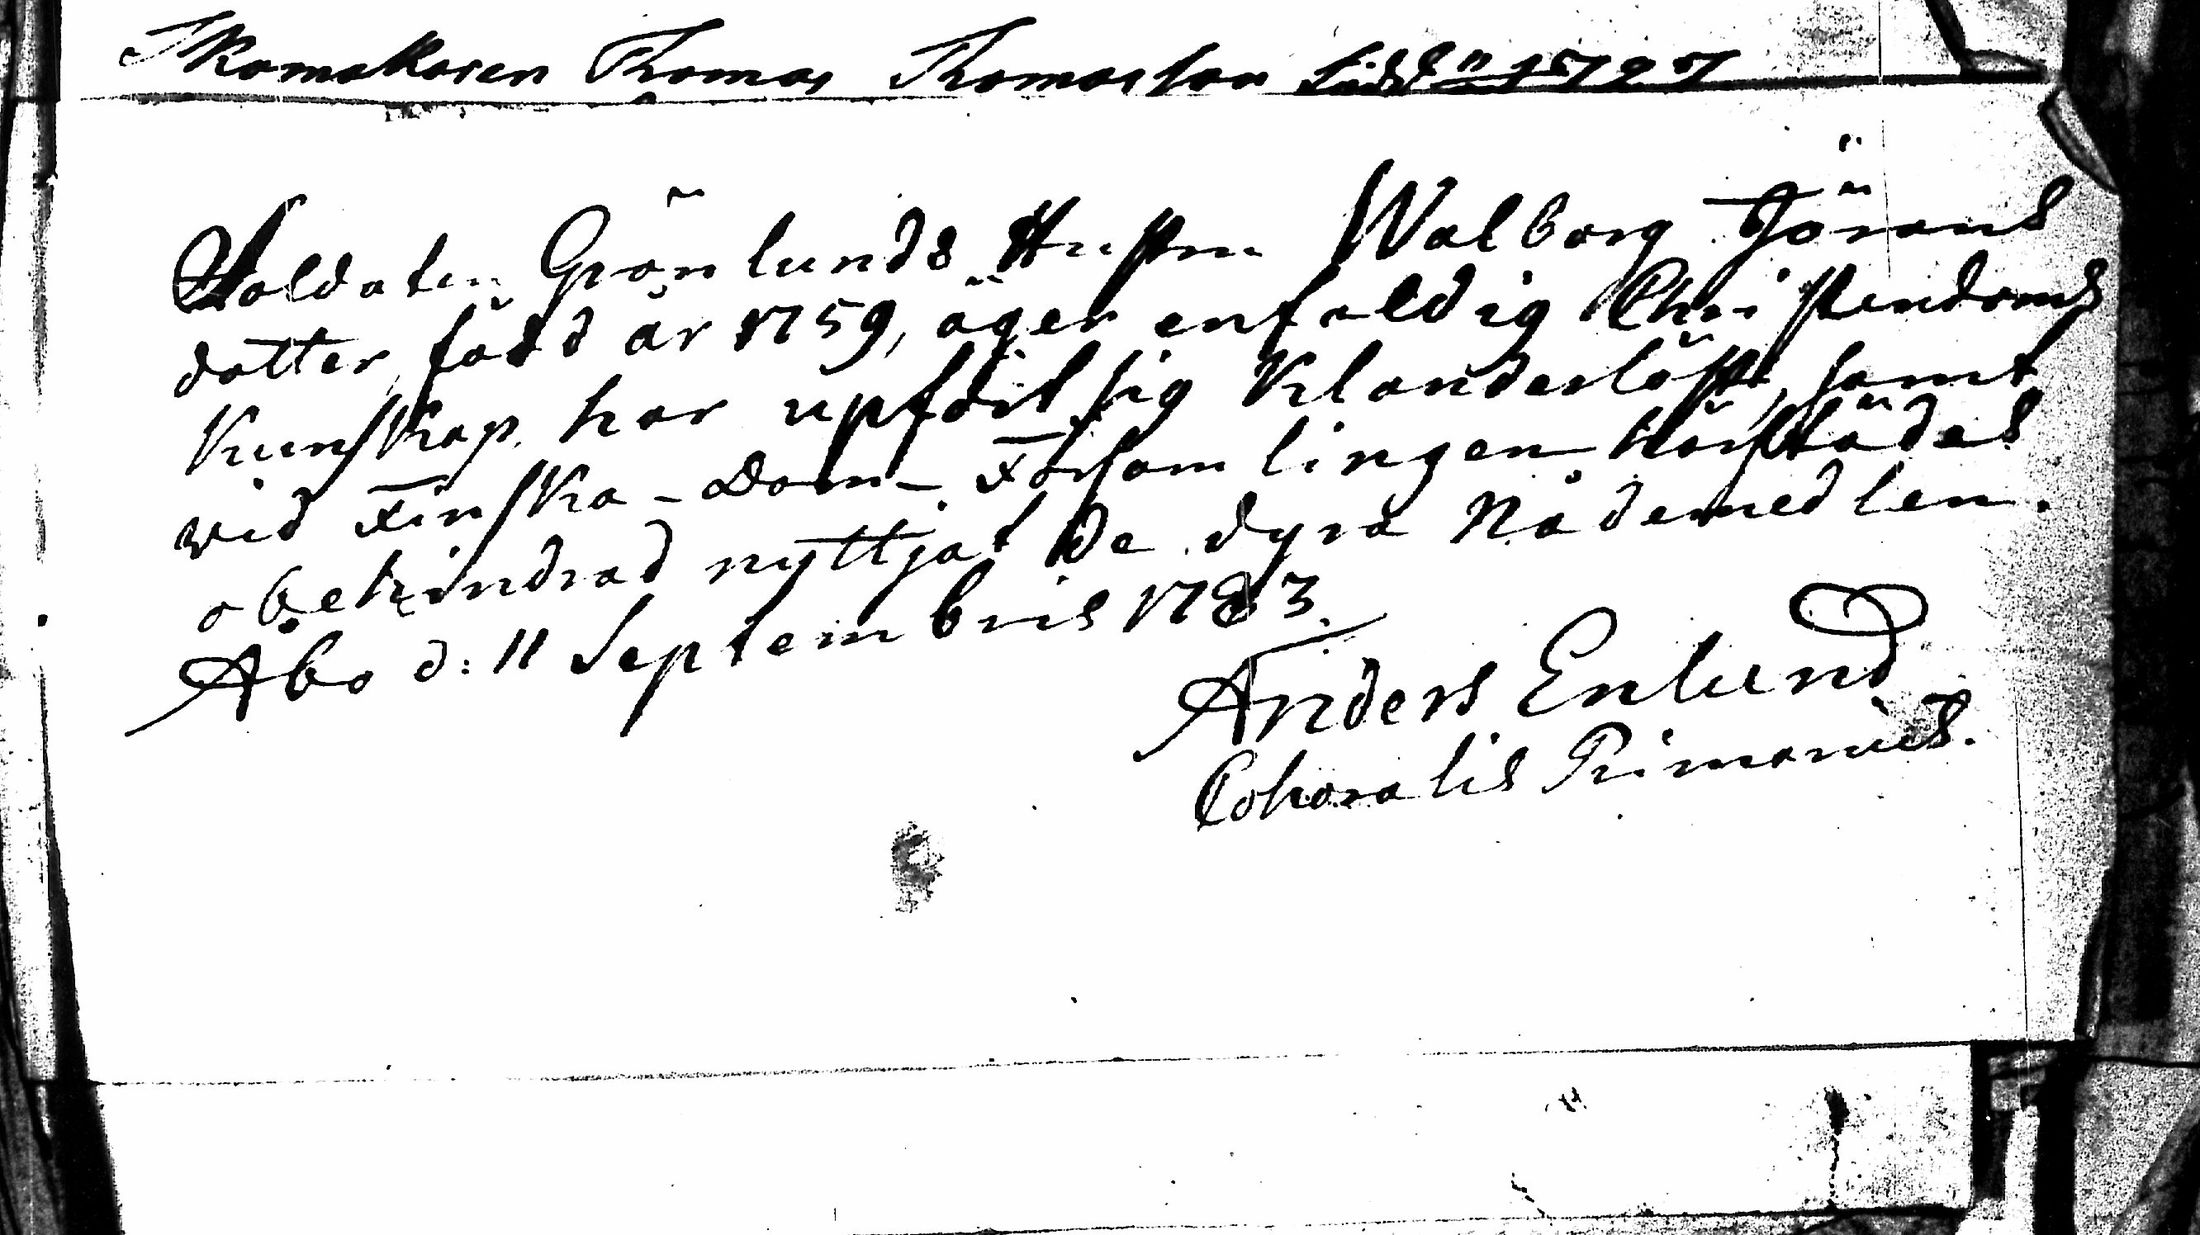 Skomakaren Thomas Thomasson född 1727
Soldaten Grönlunds Hustru Walborg Jörans
dotter, född år 1759, äger enfaldig Christendoms
Kunskap, har upfördt sig Klanderlöst, samt
wid Finska-Dom-Församlingen härstädes
obehindrad nyttjat de dyra Nådemedlen.
Åbo d: 11 Septembris 1783.
Anders Enlund
Cohoralis Primarius.